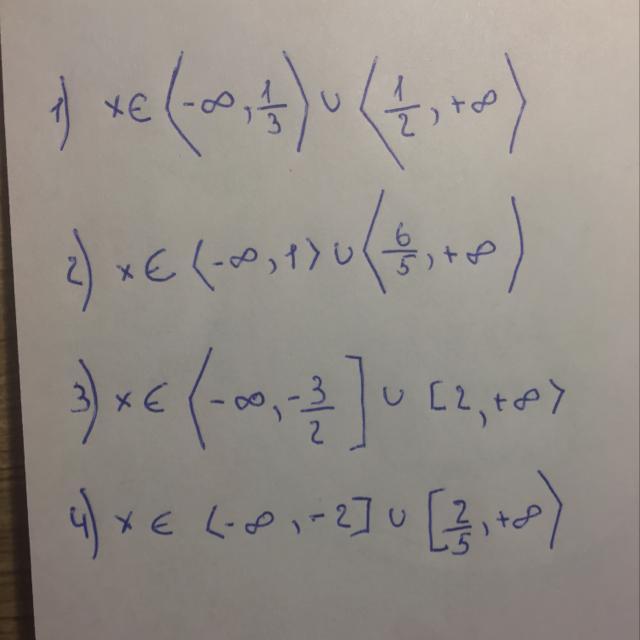 1) x ∈ ⟨-∞, 1/3⟩ ∪ ⟨1/2, +∞⟩
2) x ∈ ⟨-∞, 1⟩ ∪ ⟨6/5, +∞⟩
3) x ∈ ⟨-∞, -3/2] ∪ [2, +∞⟩
4) x ∈ ⟨-∞, -2] ∪ [2/5, +∞⟩